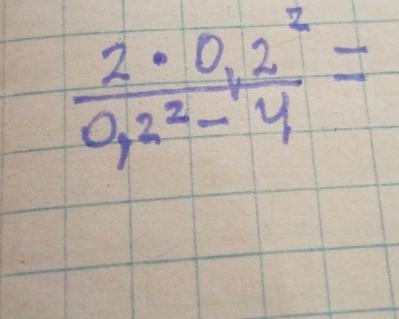 2 · 0,2² =
0,2² - 4